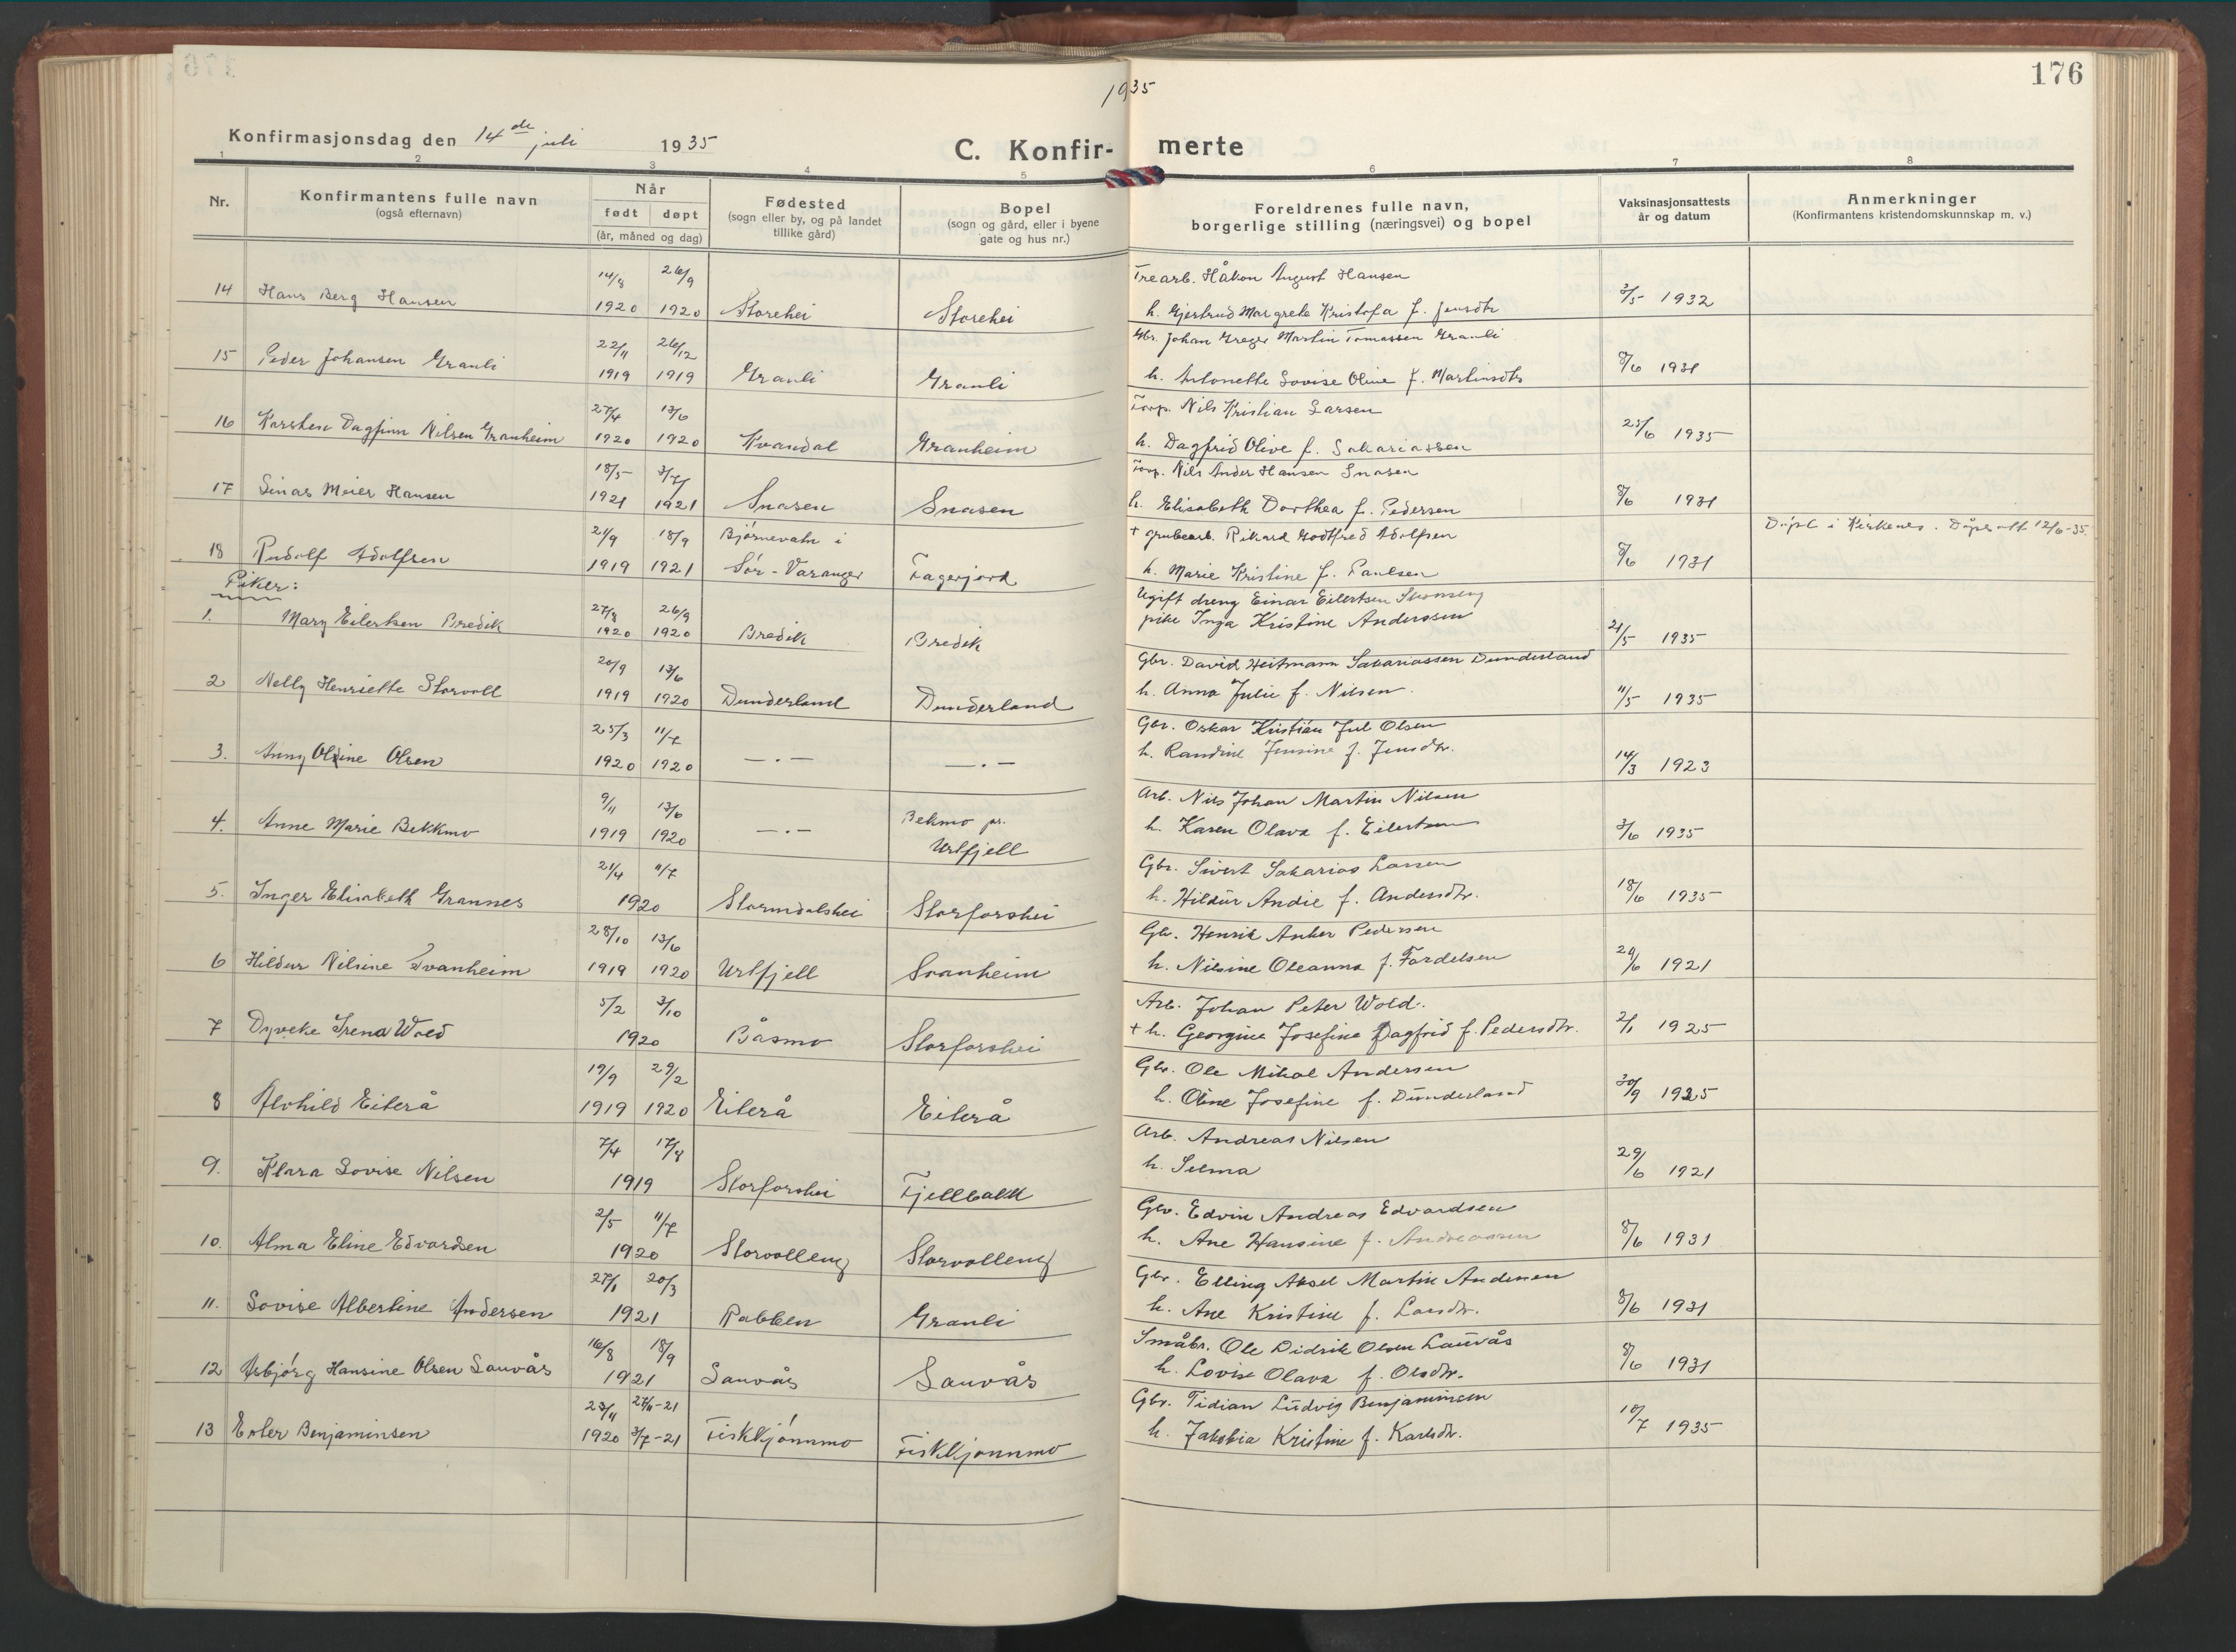 1935
176
Konfirmasjonsdag den 14de juli 1935
C. Konfir- merte
1 2 3 4 5 6 7 8
Nr.
Konfirmantens fulle navn
(også efternavn)
Når
født døpt
(år, måned og dag)
Fødested
(sogn eller by, og på landet
tillike gård)
Bopel
(sogn og gård, eller i byene
gate og hus nr.)
Foreldrenes fulle navn,
borgerlige stilling (næringsvei) og bopel
Vaksinasjonsattests
år og datum
Anmerkninger
(Konfirmantens kristendomskunnskap m. v.)
14/8 26/9 Trearb. Håkon August Hansen
14 Hans Berg Hansen 1920 1920 Storehei Storehei h. Gjertrud Margrete Kristofa f. Jensdtr 3/5 1932
22/11 26/12 Gbr. Johan Greger Martin Tomassen Granli
15 Peder Johansen Granli 1919 1919 Granli Granli h. Antonette Lovise Oline f. Martinsdtr 8/6 1931
27/4 13/6 Forp. Nils Kristian Larsen
16 Karsten Dagfinn Nilsen Granheim 1920 1920 Kvandal Granheim h. Dagfrid Olive f. Sakariassen 25/6 1935
18/5 3/7 Forp. Nils Ander Hansen Snasen
17 Linas Meier Hansen 1921 1921 Snasen Snasen h. Elisabeth Dorthea f. Pedersen 8/6 1931
21/9 18/9 Bjørnevatn i + grubearb. Rikard Godtfred Adolfsen Døpt i Kirkenes. Dåpsatt. 12/6-35.
18 Rudolf Adolfsen 1919 1921 Sør-Varanger Fagerjord h. Marie Kristine f. Paulsen 8/6 1931
Piker:
27/8 26/9 Ugift dreng Einar Eilertsen
1. Mary Eilertsen Bredek 1920 1920 Bredek Bredek pike Inga Kristine Anderssen 21/5 1935
20/9 13/6 Gbr. David Heitmann Sakariassen Dunderland
2 Nelly Henriette Storvoll 1919 1920 Dunderland Dunderland h. Anna Julie f. Nilsen. 11/5 1935
25/3 11/7 Gbr. Oskar Kristian Jul Olsen
3. Anny Oldine Olsen 1920 1920 —.— —.— h. Randine Jensine f. Jensdtr. 14/3 1923
9/11 13/6 Bekmo pr. Arb. Nils Johan Martin Nilsen
4. Anne Marie Bekkmo 1919 1920 —.— Urtfjell h. Karen Olava f. Eilertsen 3/6 1935
21/4 11/7 Gbr. Sivert Sakarias Larsen
5. Inger Elisabeth Grannes 1920 Stormdalshei Storforshei h. Hildur Andie f. Andersdtr. 18/6 1935
28/10 13/6 Gbr. Henrik Anker Pedersen
6 Hildur Nilsine Svanheim 1919 1920 Urtfjell Svanheim h. Nilsine Oleanna f. Fordelsen 29/6 1921
5/2 3/10 Arb. Johan Peter Wold.
7 Dyveke Irena Wold 1920 Båsmo Storforshei + h. Georgine Josefine Dagfrid f. Pedersdtr. 2/1 1925
19/9 29/2 Gbr. Ole Mikal Andersen
8 Alvhild Eiterå 1919 1920 Eiterå Eiterå h. Oline Josefine f. Dunderland 30/9 1925
7/4 17/8 Arb. Andreas Nilsen
9. Klara Lovise Nilsen 1919 Storforshei Fjellbakk h. Selma 29/6 1921
2/5 11/7 Gbr. Edvin Andreas Edvardsen
10. Alma Eline Edvardsen 1920 Storvolleng Storvolleng h. Ane Hansine f. Andreassen 8/6 1931
27/1 20/3 Gbr. Elling Aksel Martin Andersen
11. Lovise Albertine Andersen 1921 Rabben Granli h. Ane Kristine f. Larsdtr. 8/6 1931
16/8 18/9 Småbr. Ole Didrik Olsen Lauvås
12 Asbjørg Hansine Olsen Lauvås 1921 Lauvås Lauvås h. Lovise Olava f. Olsdtr. 8/6 1931
23/11 27/11-21 Gbr. Tidian Ludvig Benjaminsen
13 Ester Benjaminsen 1920 3/7-21 Fiskkjønnmo Fiskkjønnmo h. Jakobia Kristine f. Karlsdtr. 10/7 1935